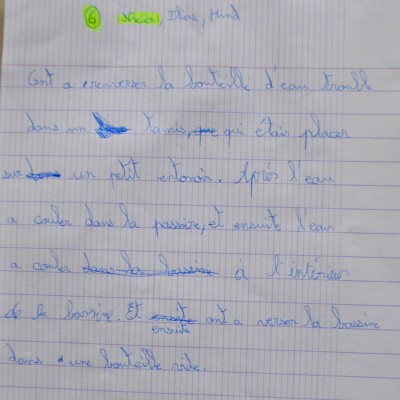 6 Nicia, Ilias, Hind
Ont a renverser la bouteille d'eau trouble
dans un tamis, que qui étais placer
sur un petit entonoir. Après l'eau
a couler dans la passoire, et ensuite l'eau
a couler dans la bassine à l'intérieur
de la bassine. Et ensuite ont a verser la bassine
ensuite
dans une bouteille vide.